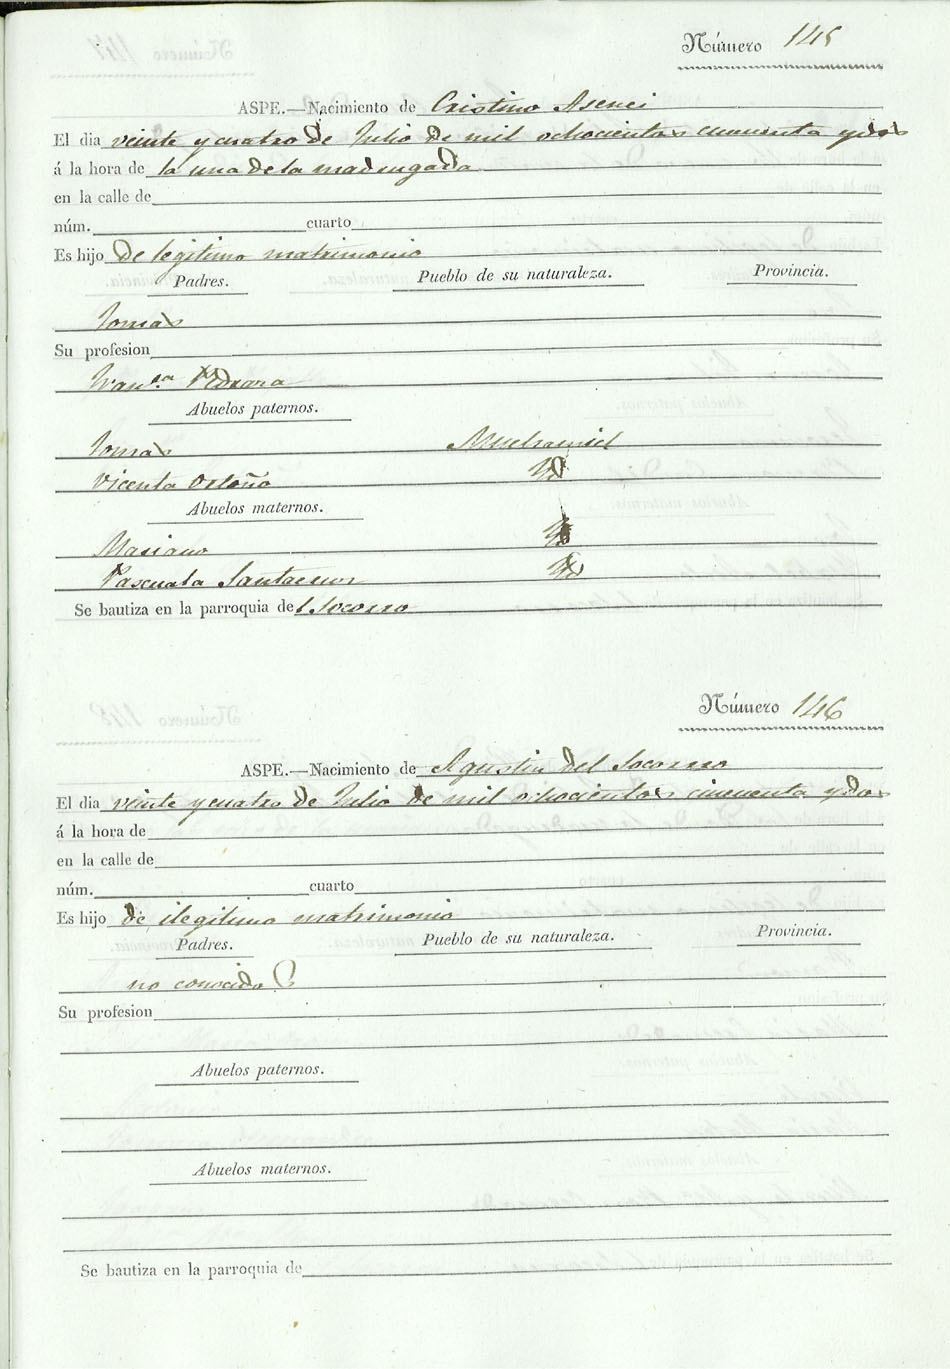 Número 145
ASPE.—Nacimiento de Cristino Asenci
El dia veinte y cuatro de Julio de mil ochocientos cincuenta y dos
á la hora de la una de la madrugada
en la calle de
núm. cuarto
Es hijo de legitimo matrimonio
Padres. Pueblo de su naturaleza. Provincia.
Tomas
Su profesion
Abuelos paternos.
Tomas Muchamiel
Vicenta Ortoño Yd
Abuelos maternos.
Mariano Yd
Pascuala Yd
Se bautiza en la parroquia del Socorro
Número 146
ASPE.—Nacimiento de Agustin del Socorro
El dia veinte y cuatro de Julio de mil ochocientos cincuenta y dos
á la hora de
en la calle de
núm. cuarto
Es hijo de ilegitimo matrimonio
Padres. Pueblo de su naturaleza. Provincia.
no conocido
Su profesion
Abuelos paternos.
Abuelos maternos.
Se bautiza en la parroquia de